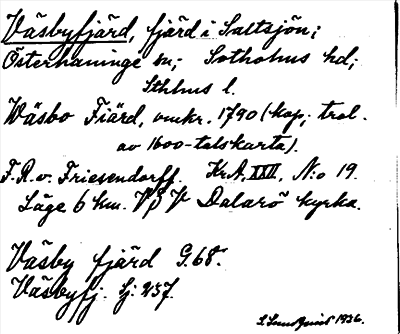 Väsbyfjärd, fjärd i Saltsjön;
Österhaninge sn; Sotholms hd;
Sthlms l.
Wäsbo Fiärd, omkr. 1790 (kop; trol.
av 1600-talskarta).
F. R. v. Friesendorff. Kr.A. XXII, N:o 19.
Läge 6 km. V β V Dalarö kyrka.
Väsby fjärd G. 68.
Väsbyfj. Sj: 257.
1936.